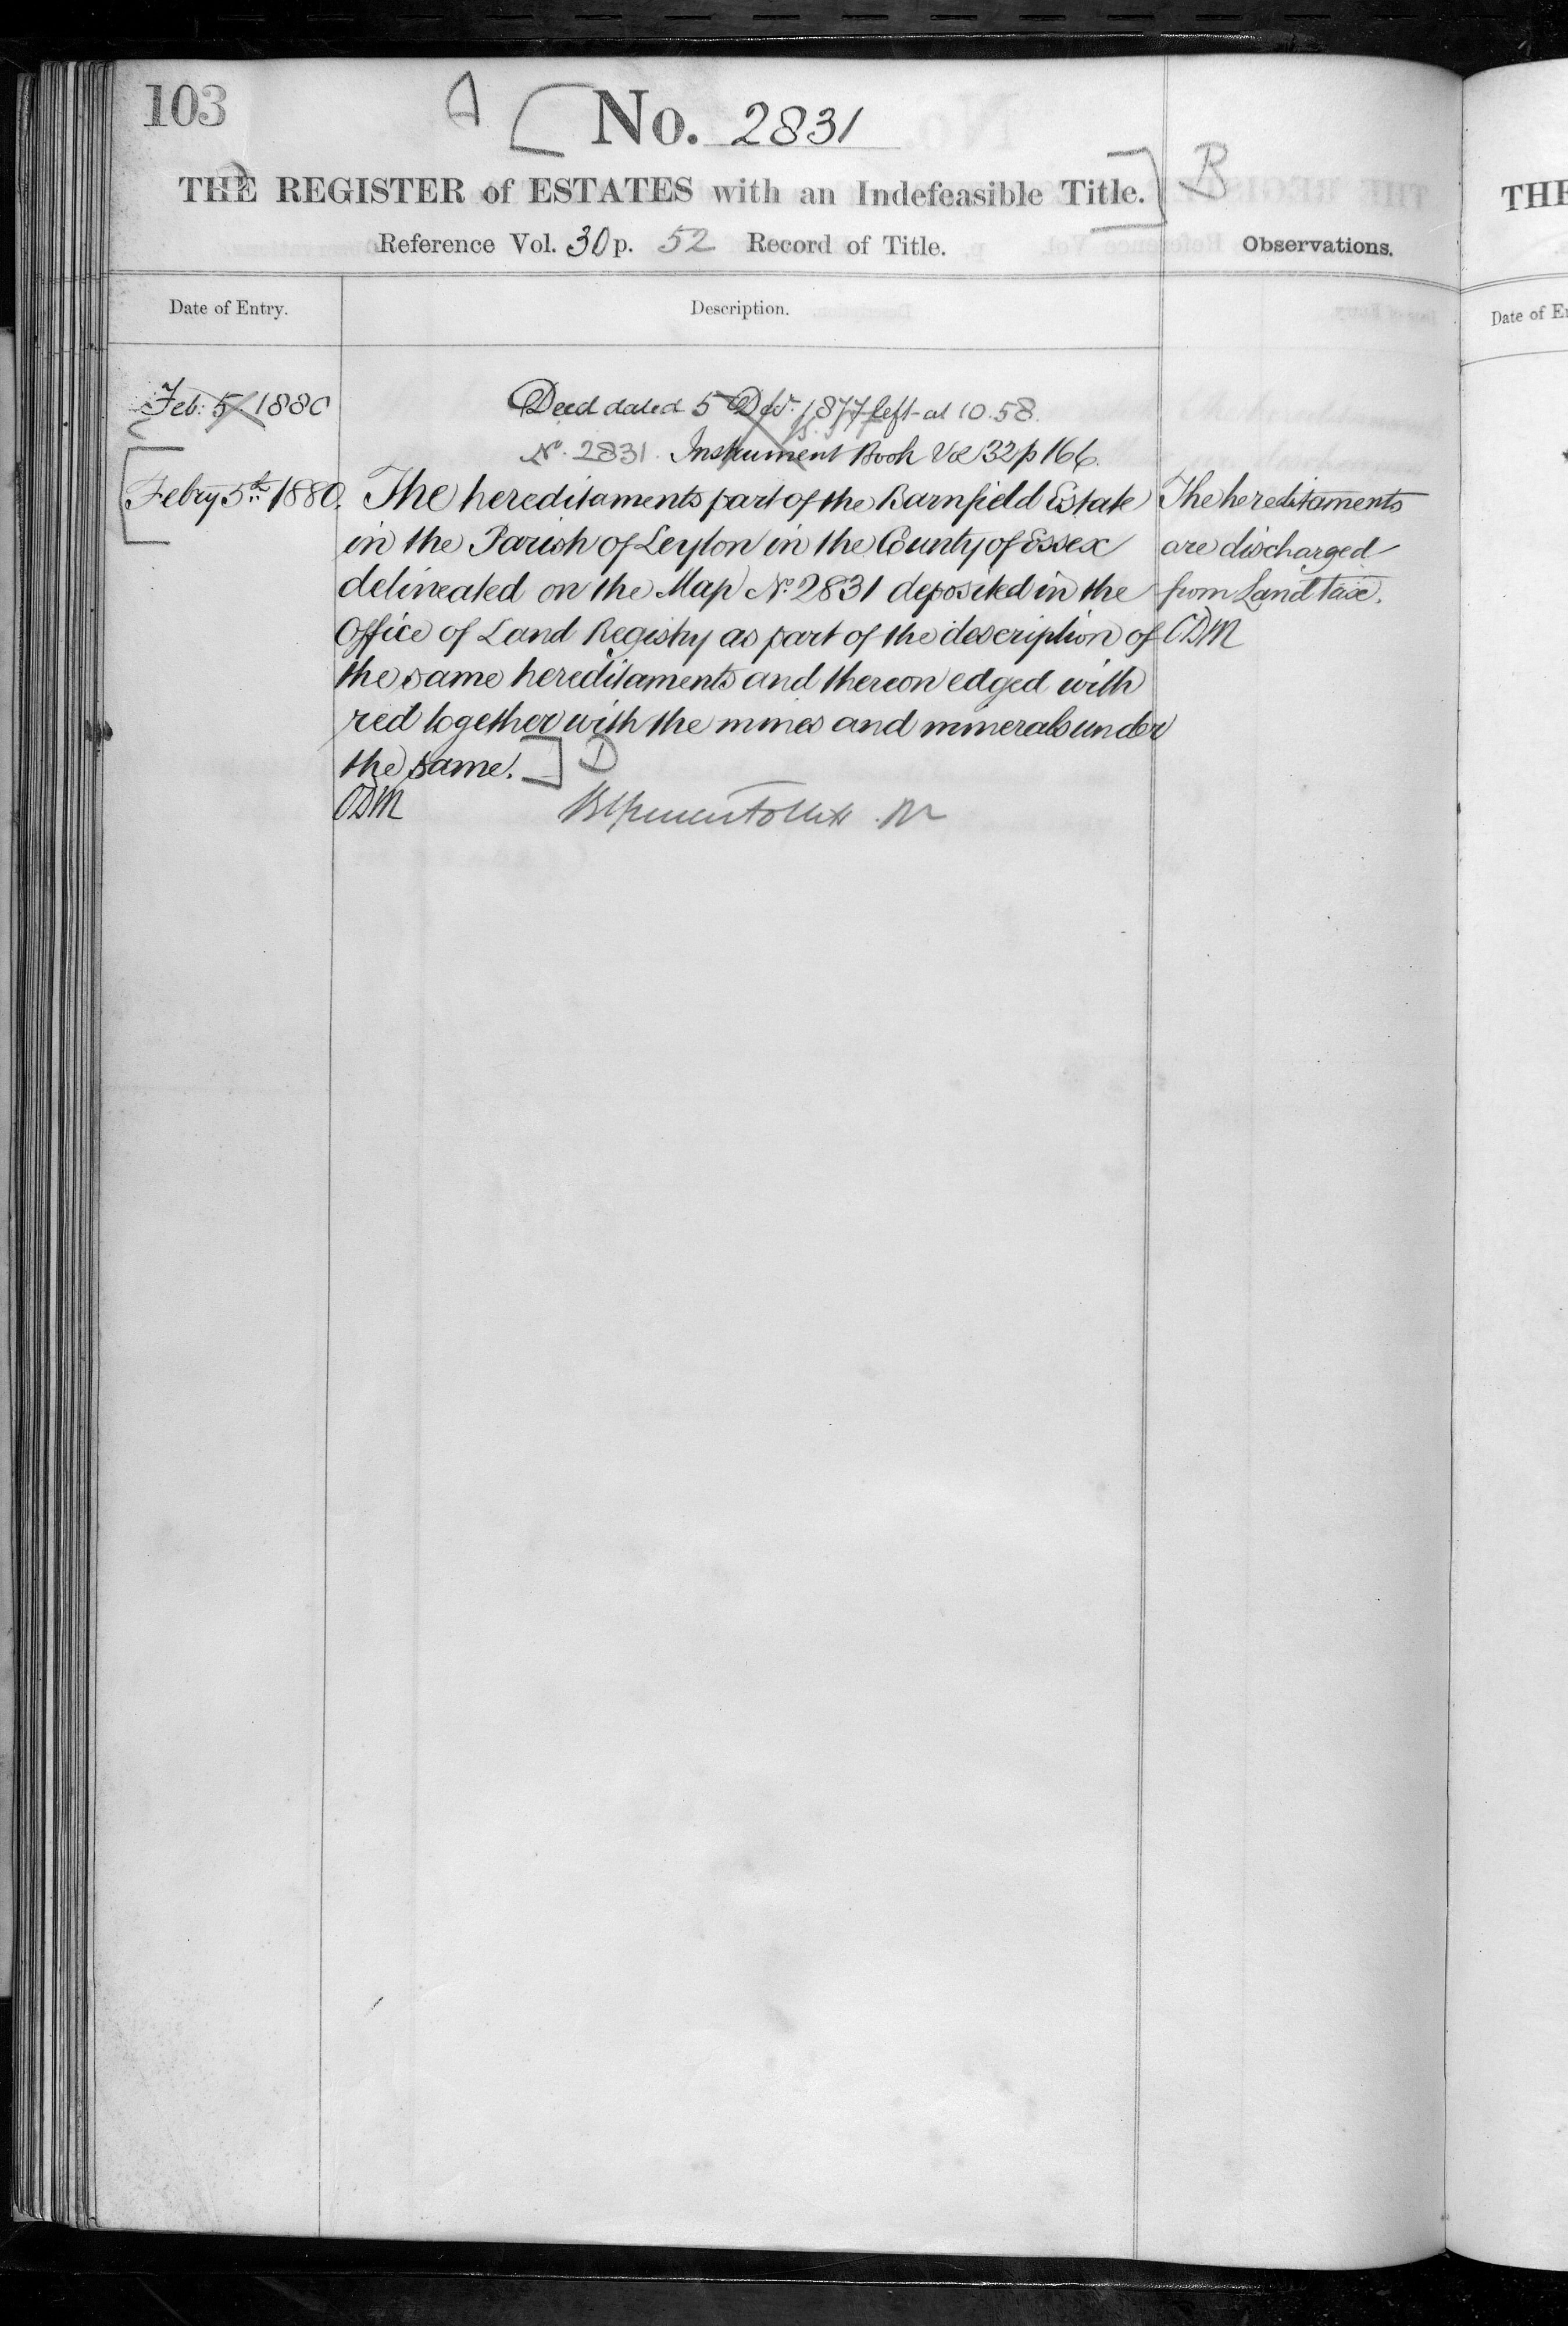 103
A
No. 2831
THE REGISTER of ESTATES with an Indefeasible Title.
B
Reference Vol. 30 p. 52 Record of Title.
Observations.
Date of Entry.
Description.
Feb: 5 1880
Deed dated 5 1877 left at 10.58.
No. 2831 Instrument Book Vol 32 p 166.
Febry 5th 1880.
The hereditaments part of the Barnfield Estate
in the Parish of Leyton in the County of Essex
delineated on the Map No. 2831 deposited in the
Office of Land Registry as part of the description of
the same hereditaments and thereon edged with
red together with the mines and minerals under
the same. D
CDM
The hereditaments
are discharged
from Land tax.
CDM
THE
Date of En